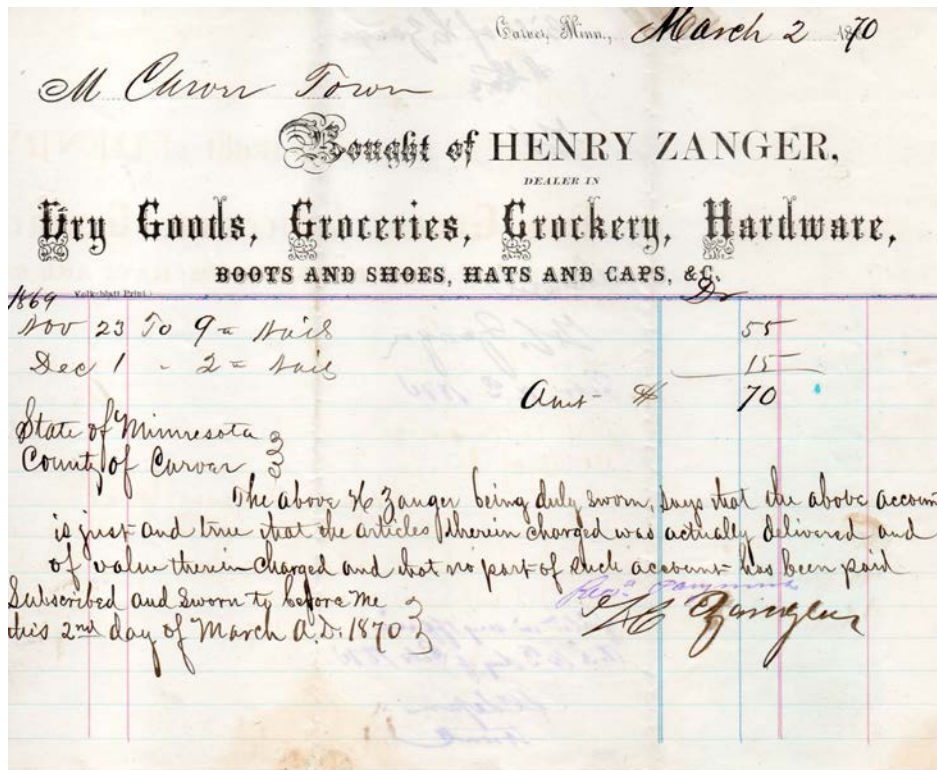 Carver, Minn., March 2 1870
M Carver Town
Bought of HENRY ZANGER,
DEALER IN
Dry Goods, Groceries, Crockery, Hardware,
BOOTS AND SHOES, HATS AND CAPS, &C.
1869 Volksblatt Print. Dr
Nov 23 To 9 = Nails 55
Dec 1 - 2 = Nails 15
Amt $ 70
State of Minnesota
County of Carver
The above H Zanger being duly sworn, says that the above accoun
is just and true that the articles therein charged was actually delivered and
of value therein charged and that no part of such account has been paid
Subscribed and sworn to before me
this 2nd day of March A.D. 1870
Recd payment
H Zanger